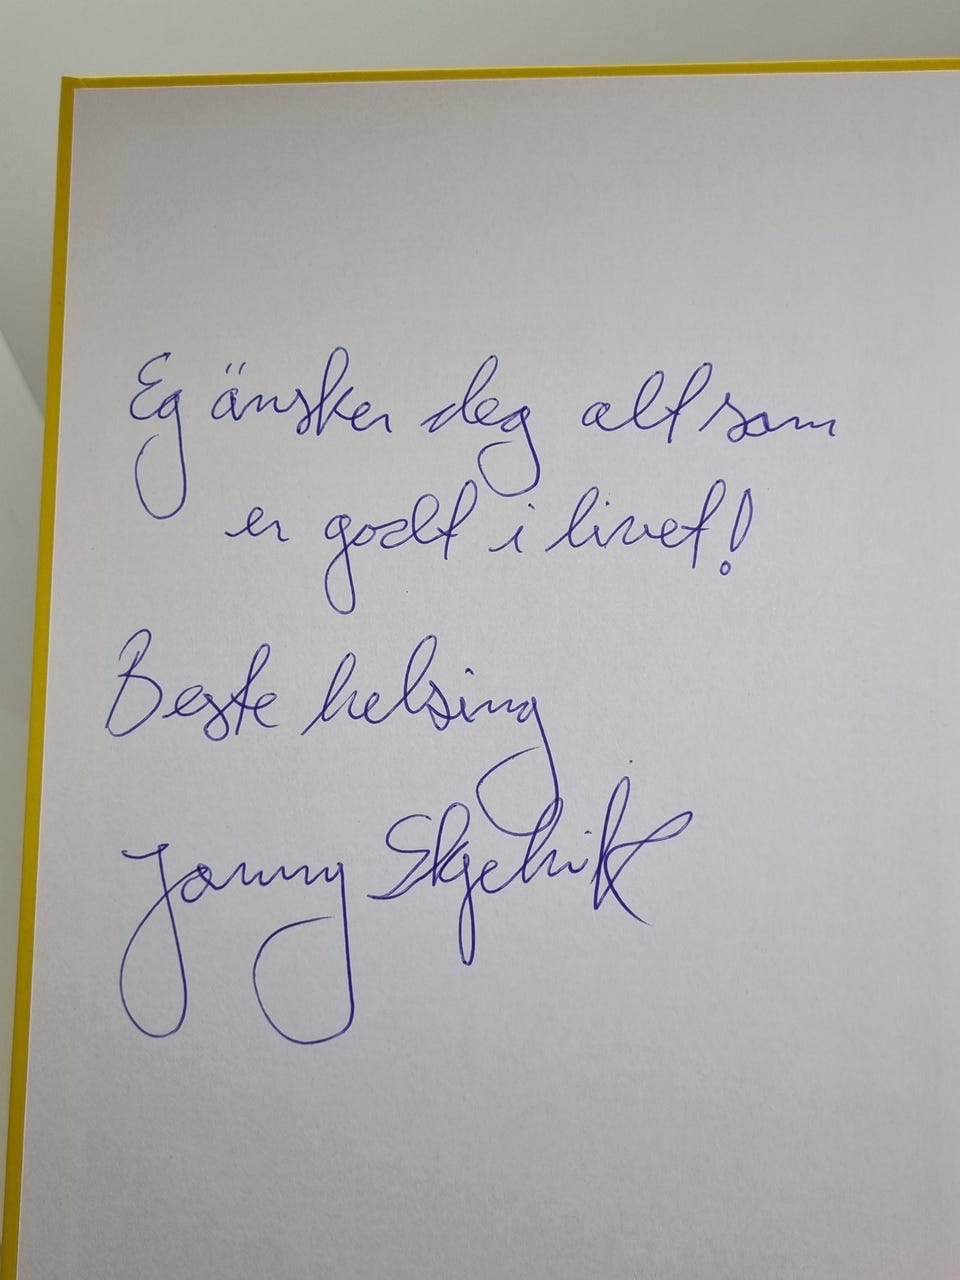 Eg änsker deg alt som
er godt i livet!
Beste helsing
Jonny